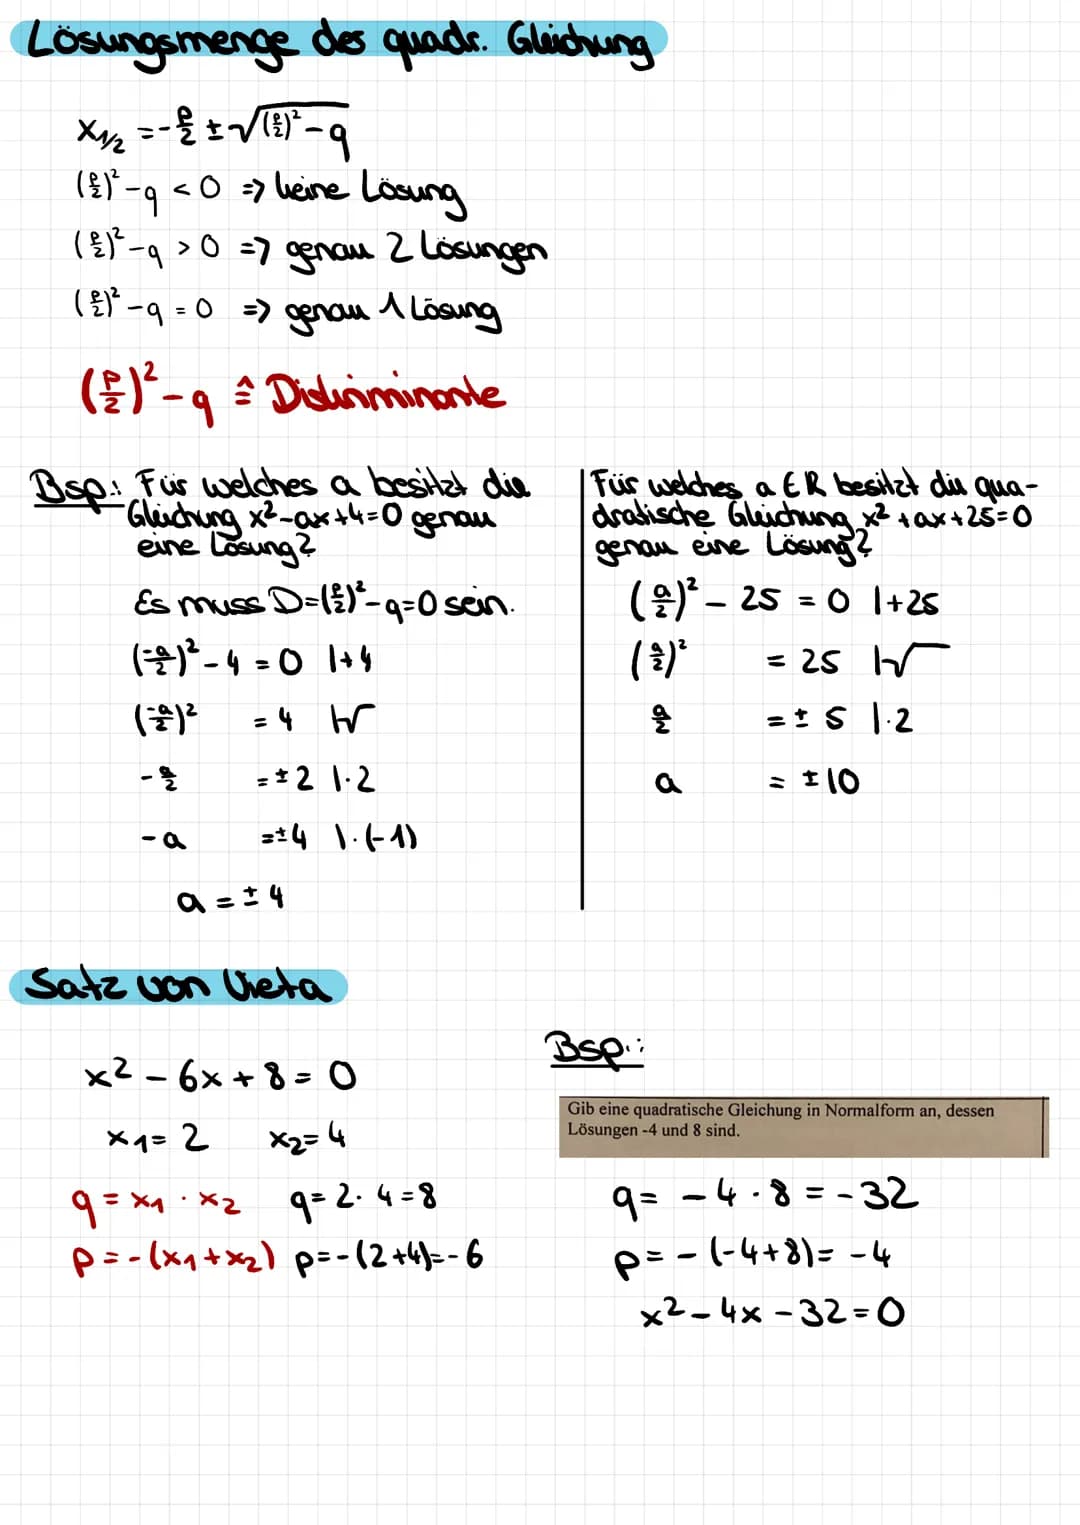 Lösungsmenge des quadr. Gleichung
x₁/₂ = -p/2 ± √((p/2)² - q)
(p/2)² - q < 0 => keine Lösung
(p/2)² - q > 0 => genau 2 Lösungen
(p/2)² - q = 0 => genau 1 Lösung
(p/2)² - q ≙ Diskriminante
Bsp.: Für welches a besitzt die
Gleichung x² - ax + 4 = 0 genau
eine Lösung?
Es muss D = (p/2)² - q = 0 sein.
(-a/2)² - 4 = 0 | + 4
(-a/2)² = 4 | √
-a/2 = ± 2 | · 2
-a = ± 4 | · (-1)
a = ± 4
Für welches a ∈ R besitzt die qua-
dratische Gleichung x² + ax + 25 = 0
genau eine Lösung?
(a/2)² - 25 = 0 | + 25
(a/2)² = 25 | √
a/2 = ± 5 | · 2
a = ± 10
Satz von Vieta
x² - 6x + 8 = 0
x₁ = 2 x₂ = 4
q = x₁ · x₂ q = 2 · 4 = 8
p = -(x₁ + x₂) p = -(2 + 4) = -6
Bsp.:
Gib eine quadratische Gleichung in Normalform an, dessen
Lösungen -4 und 8 sind.
q = -4 · 8 = -32
p = -(-4 + 8) = -4
x² - 4x - 32 = 0